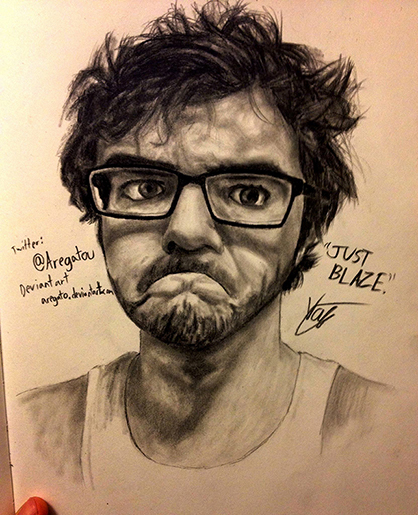 Twitter:
@Aregatou
Deviantart
aregato.deviantart.com
"JUST
BLAZE."